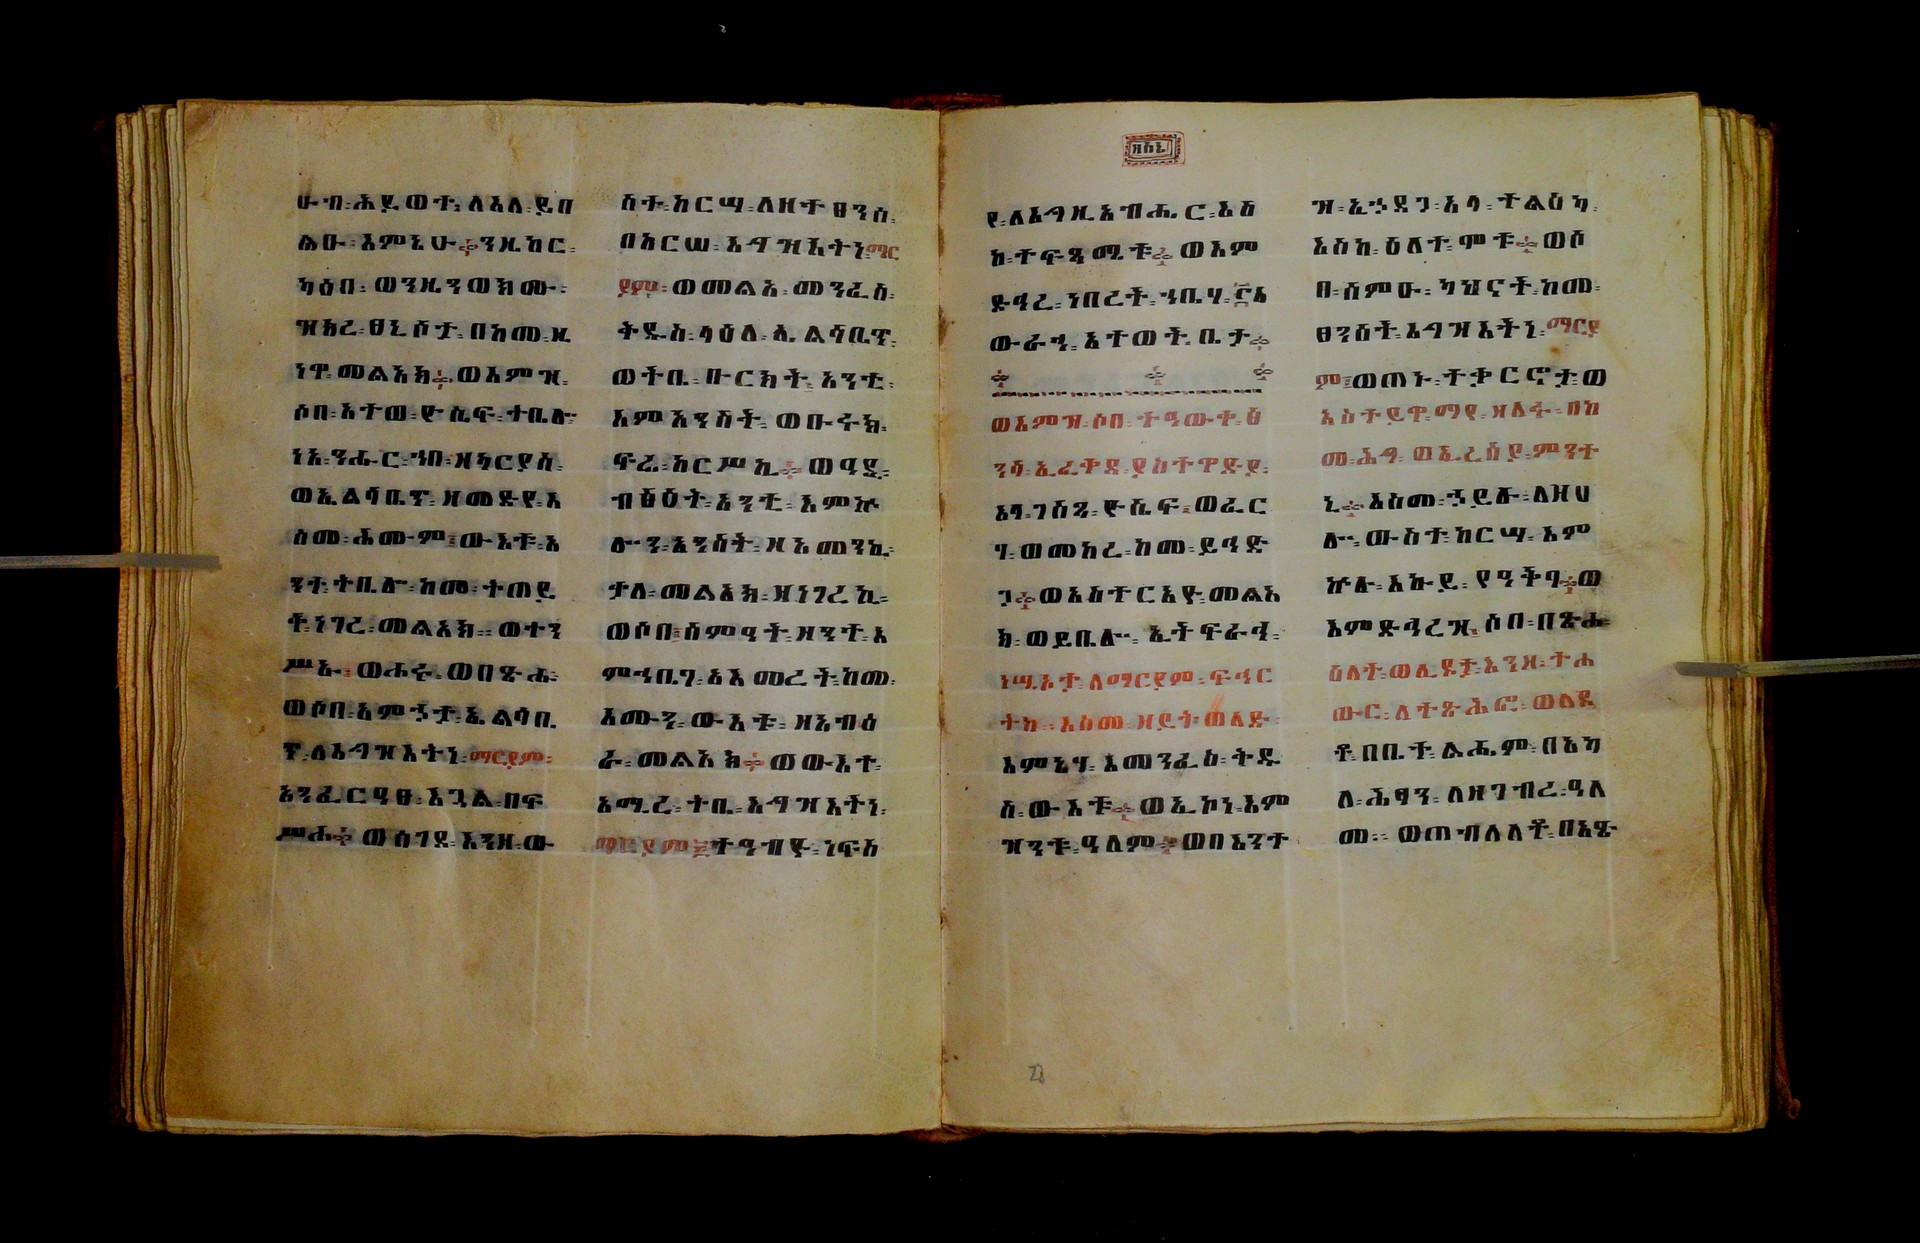 ሁብ፡ሕይወተ፡ለእለ፡ይበ
ልዑ፡እምኔሁ።ንዚከር፡
ካዕበ፡ወንዜንወክሙ፡
ዝክረ፡ፀኒሶታ፡በከመ፡ዜ
ነዋ፡መልአክ።ወእምዝ፡
ሶበ፡አተወ፡ዮሴፍ፡ተቤሎ
ነአ፡ንሑር፡ኀበ፡ዘካርያስ፡
ወኤልሳቤጥ፡ዘመድየ፡እ
ስመ፡ሕሙም፡ውእቱ፡እ
ንተ፡ትቤሎ፡ከመ፡ተጠየ
ቶ፡ነገረ፡መልአክ፡፡ወተን
ሥኡ፡ወሖሩ፡ወበጽሑ፡
ወሶበ፡አምኃታ፡ኤልሳቤ
ጥ፡ለእግዝእትነ፡ማርያም፡
አንፈርዓፀ፡እጓል፡በፍ
ሥሐ።ወሰገደ፡እንዘ፡ው
ስተ፡ከርሣ፡ለዘተፀንሰ፡
በከርሠ፡እግዝእትነ፡ማር
ያም፡ወመልአ፡መንፈስ፡
ቅዱስ፡ላዕለ፡ኤልሳቤጥ፡
ወትቤ፡ቡርክት፡አንቲ፡
እምአንስት፡ወቡሩክ፡
ፍሬ፡ከርሥኪ።ወዓዲ፡
ብፅዕት፡አንቲ፡እምኵ
ሎን፡አንስት፡ዘአመንኪ፡
ቃለ፡መልአክ፡ዘነገረኪ፡
ወሶበ፡ሰምዓት፡ዘንተ፡እ
ምኀቤሃ፡አእመረት፡ከመ፡
እሙን፡ውእቱ፡ዘአብሰ
ራ፡መልአክ።ወውእተ፡
አሚረ፡ትቤ፡እግዝእትነ፡
ማርያም፡ተዓብዮ፡ነፍስ
ዘሰኔ
የ፡ለእግዚአብሔር፡እስ
ከ፡ተፍጻሜቱ።ወእም
ድኅረ፡ነበረት፡ኀቤሃ፡፫አ
ውራኀ፡አተወት፡ቤታ።
ወእምዝ፡ሶበ፡ተዓውቀ፡ፅ
ንሳ፡ኢፈቀደ፡ያስተዋድያ፡
አላ፡ገሰጻ፡ዮሴፍ፡ወፈር
ሃ፡ወመከረ፡ከመ፡ይኅድ
ጋ።ወአስተርአዮ፡መልአ
ክ፡ወይቤሎ፡ኢትፍራህ፡
ነሢኦታ፡ለማርያም፡ፍኅር
ትከ፡እስመ፡ዘይትወለድ፡
እምኔሃ፡እመንፈስ፡ቅዱ
ስ፡ውእቱ።ወኢኮነ፡እም
ዝንቱ፡ዓለም።ወበእንተ
ዝ፡ኢኃደጋ፡አላ፡ተልእካ፡
እስከ፡ዕለተ፡ሞቱ።ወሶ
በ፡ሰምዑ፡ካህናት፡ከመ፡
ፀንሰት፡እግዝእትነ፡ማርያ
ም፡ወጠኑ፡ተቃርኖታ፡ወ
አስተይዋ፡ማየ፡ዘለፋ፡በከ
መ፡ሕግ፡ወኢረሰያ፡ምንተ
ኒ።እስመ፡ኃይሉ፡ለዘሀ
ሎ፡ውስተ፡ከርሣ፡እም
ኵሉ፡እኩይ፡የዓቅባ።ወ
እምድኅረዝ፡ሶበ፡በጽሐ
ዕለተ፡ወሊዶታ፡እንዘ፡ተሐ
ውር፡ለተጽሕፎ፡ወልደ
ቶ፡በቤተ፡ልሔም፡በአካ
ለ፡ሕፃን፡ለዘገብረ፡ዓለ
መ፡፡ወጠብለለቶ፡በአፄ